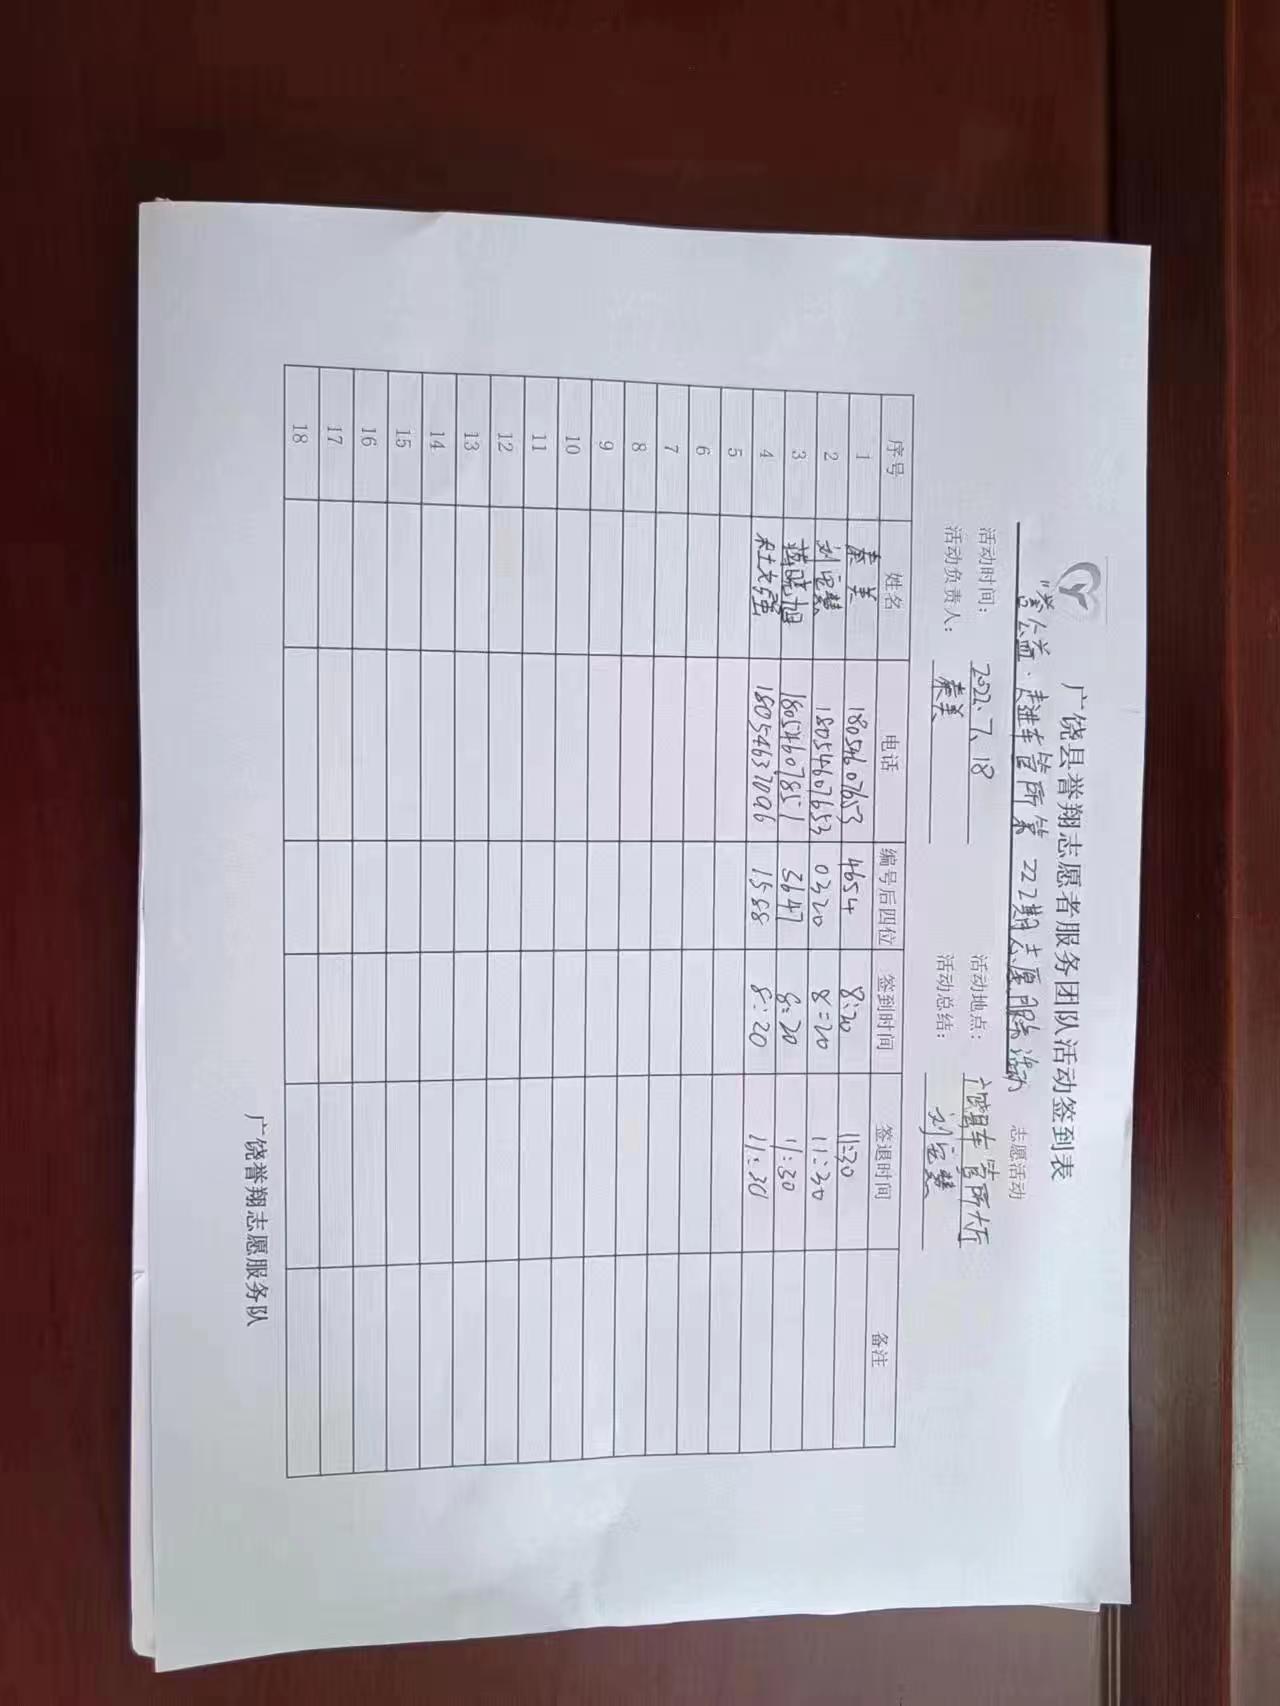 广饶县誉翔志愿者服务团队活动签到表
"誉公益·走进车管所第222期志愿服务活动 志愿活动
活动时间： 2022.7.18 活动地点： 广饶县车管所大厅
活动负责人： 秦美 活动总结： 刘宝慧
序号 姓名 电话 编号后四位 签到时间 签退时间 备注
1 秦美 18054607653 4654 8:20 11:30
2 刘宝慧 18054607653 0320 8:20 11:30
3 蒋晓旭 18054607851 3647 8:20 11:30
4 杜文强 18054637096 1588 8:20 11:30
5
6
7
8
9
10
11
12
13
14
15
16
17
18
广饶誉翔志愿服务队